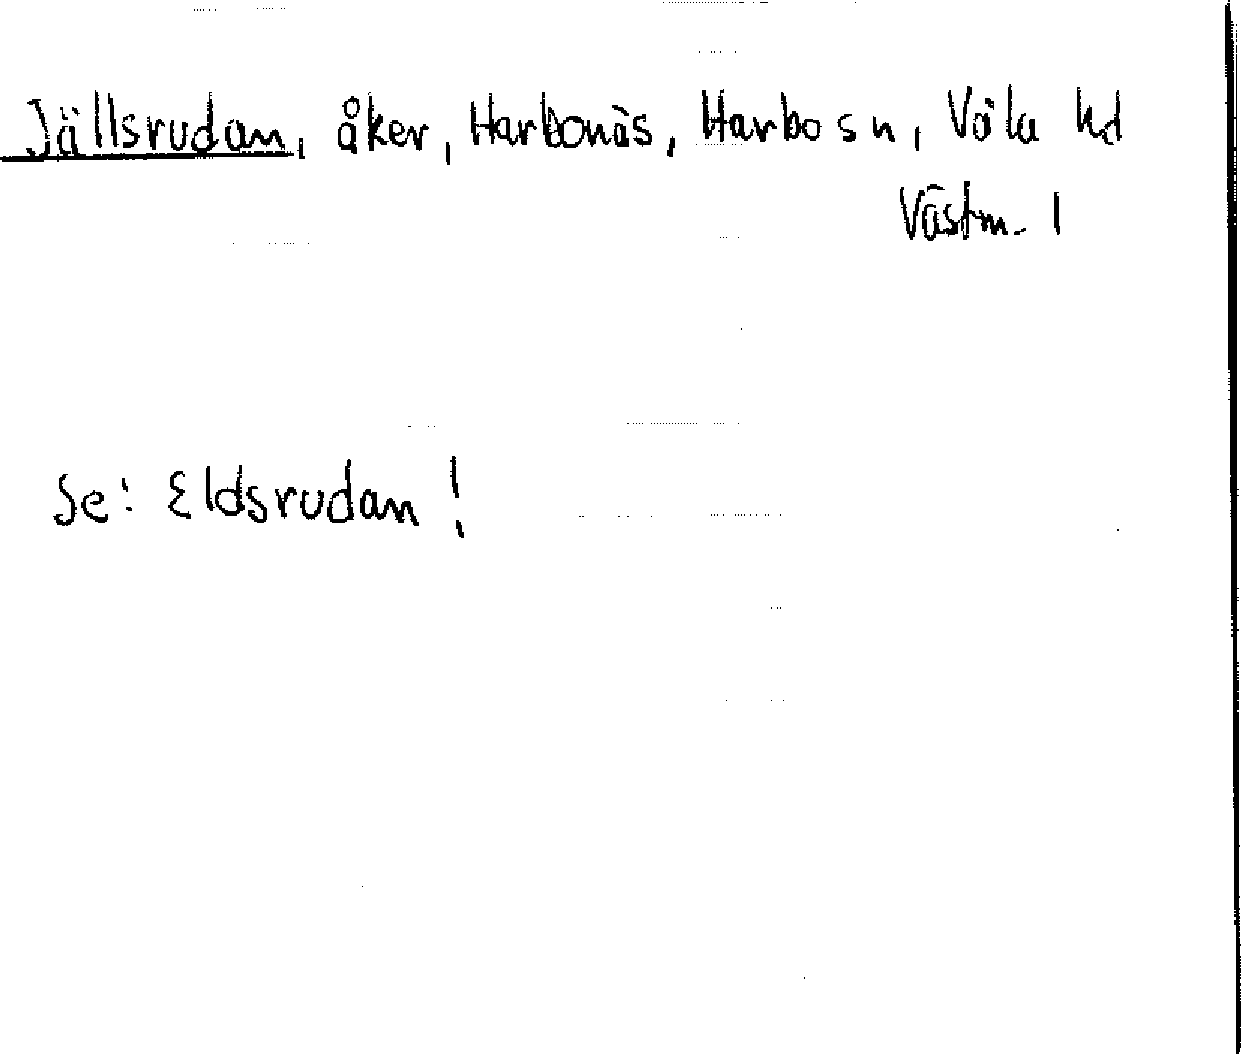 Jällsrudan, åker, Harbonäs, Harbo sn, Våla hd
Västm. l
Se: Eldsrudan!